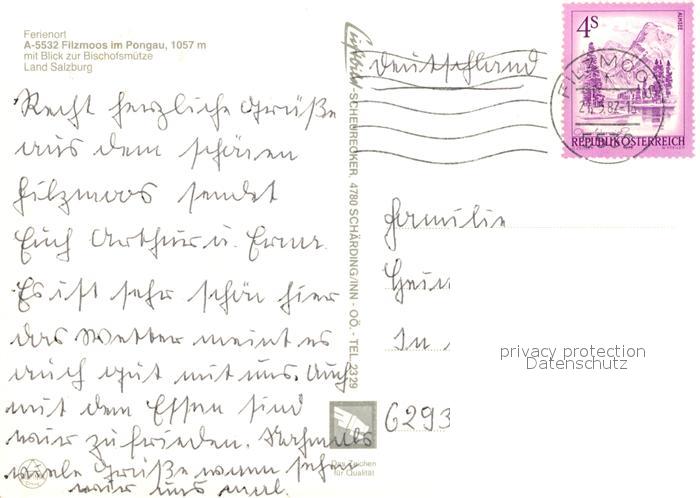 Ferienort
A-5532 Filzmoos im Pongau, 1057 m
mit Blick zur Bischofsmütze
Land Salzburg
Recht herzliche Grüße
aus dem schönen
Filzmoos sendet
Euch Arthur u. Erna.
Es ist sehr schön hier
das Wetter meint es
auch gut mit uns. Auch
mit dem Essen sind
wir zufrieden. Nochmals
viele Grüße wann sehen
wir uns mal.
-SCHEURECKER, 4780 SCHÄRDING/INN - OÖ. - TEL. 2329
Das Zeichen
für Qualität
Deutschland
4S
ALMSEE
FILZMOOS
REPUBLIK ÖSTERREICH
Familie
Hein
In
6293
privacy protection
Datenschutz